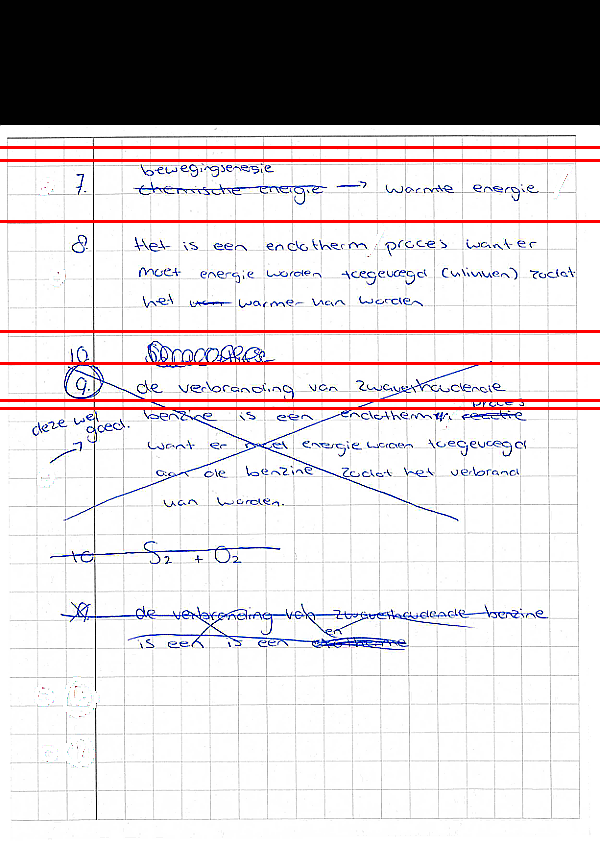 bewegingsenegie
7. chemische energie → warmte energie
8. Het is een endotherm proces want er
moet energie worden toegevoegd (vlinuen) zodat
het warmer van worden
10.
9. de verbranding van zwavelhoudende
proces
deze wel goed. → benzine is een endotherm reactie
want er moet energie worden toegevoegd
aan de benzine zodat het verbrand
van worden.
10 S2 + O2
de verbranding van zwavelhoudende benzine
en
is een is een exotherme